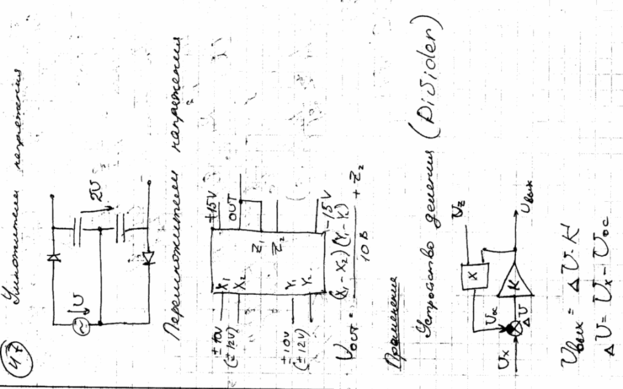 47
Умножители напряжения
U
2U
Перемножители напряжения
±10V
(±12V)
X1
X2
+15V
OUT
Z1
Z2
±10V
(±12V)
Y1
Y2
-15V
Uout = (X1 - X2)(Y1 - Y2) / 10В + Z2
Применение
Устройство деления (Divider)
Uz
X
Uос
Ux
ΔU
K
Uвых
Uвых = ΔU·K
ΔU = Ux - Uос